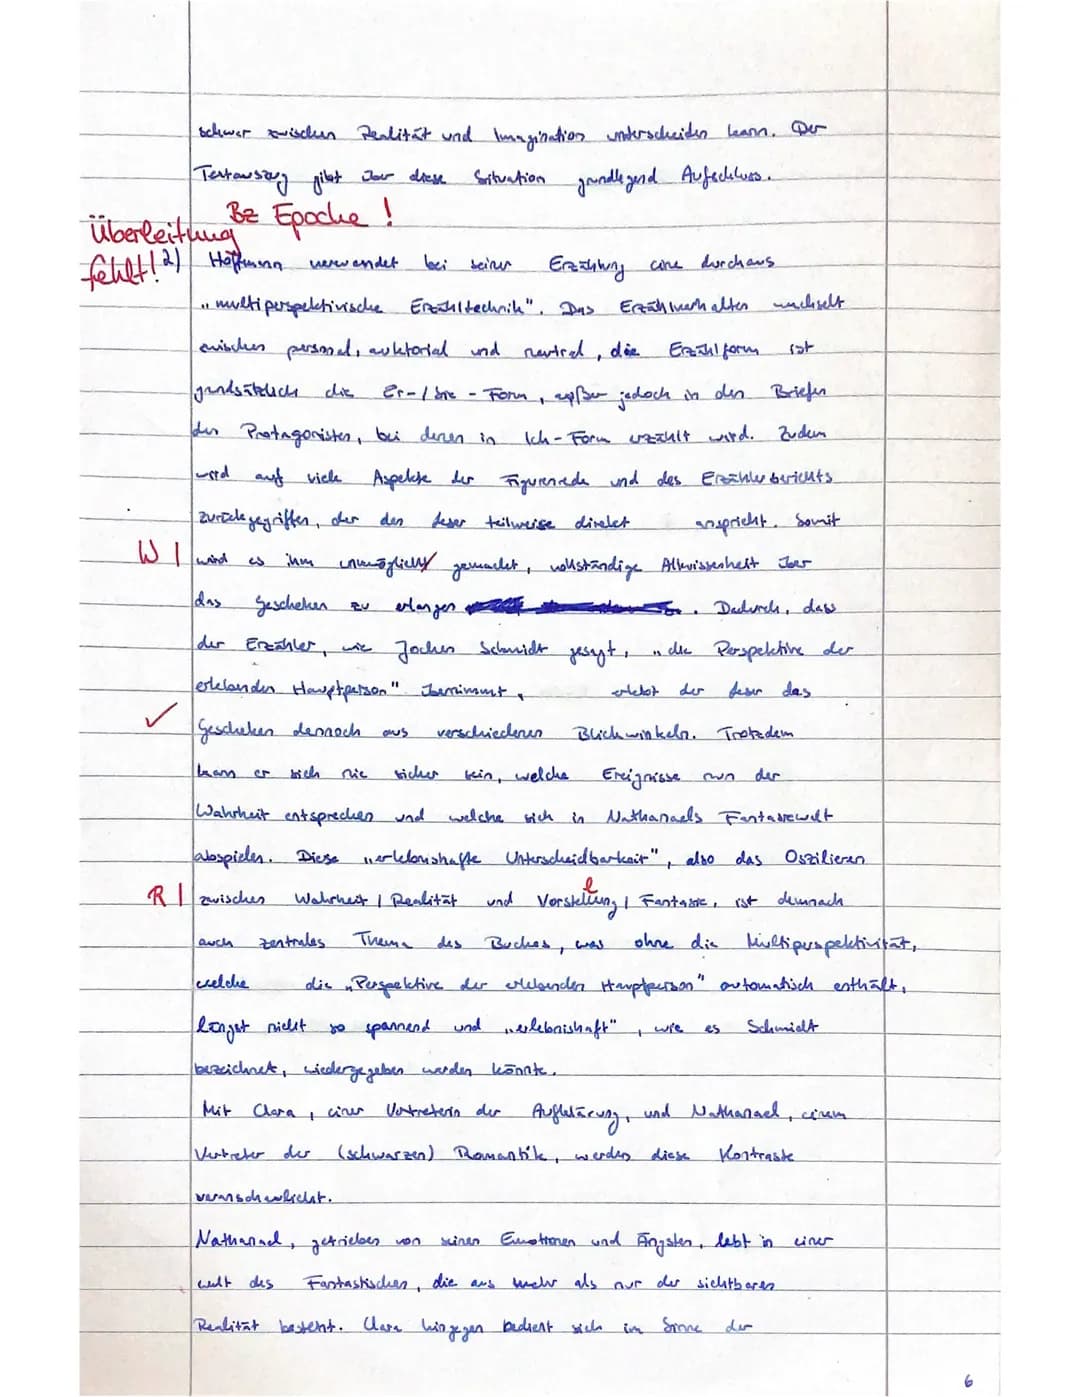 schwer zwischen Realität und Imagination unterscheiden kann. Der
Textauszug gibt über diese Situation grundlegend Aufschluss.
Bz Epoche !
Überleitung
fehlt!
2) Hoffmann verwendet bei seiner Erzählung eine durchaus
"multiperspektivische Erzähltechnik". Das Erzählverhalten wechselt
zwischen personal, auktorial und neutral, die Erzählform ist
grundsätzlich die Er-/Sie-Form, außer jedoch in den Briefen
der Protagonisten, bei denen in Ich-Form erzählt wird. Zudem
wird auf viele Aspekte der Figurenrede und des Erzählerberichts
zurückgegriffen, der den Leser teilweise direkt anspricht. Somit
W | wird es ihm unmöglich gemacht, vollständige Allwissenheit über
das Geschehen zu erlangen. Dadurch, dass
der Erzähler, wie Jochen Schmidt sagt, "die Perspektive der
erlebenden Hauptperson" übernimmt, erlebt der Leser das
✓ Geschehen dennoch aus verschiedenen Blickwinkeln. Trotzdem
kann er sich nie sicher sein, welche Ereignisse nun der
Wahrheit entsprechen und welche sich in Nathanaels Fantasiewelt
abspielen. Diese "erlebnishafte Unterscheidbarkeit", also das Oszilieren
R | zwischen Wahrheit / Realität und Vorstellung / Fantasie, ist demnach
auch zentrales Thema des Buches, was ohne die Multiperspektivität,
welche die "Perspektive der erlebenden Hauptperson" automatisch enthält,
längst nicht so spannend und "erlebnishaft", wie es Schmidt
bezeichnet, wiedergegeben werden könnte.
Mit Clara, einer Vertreterin der Aufklärung, und Nathanael, einem
Vertreter der (schwarzen) Romantik, werden diese Kontraste
veranschaulicht.
Nathanael, getrieben von seinen Emotionen und Ängsten, lebt in einer
Welt des Fantastischen, die aus mehr als nur der sichtbaren
Realität besteht. Clara hingegen bedient sich im Sinne der
6